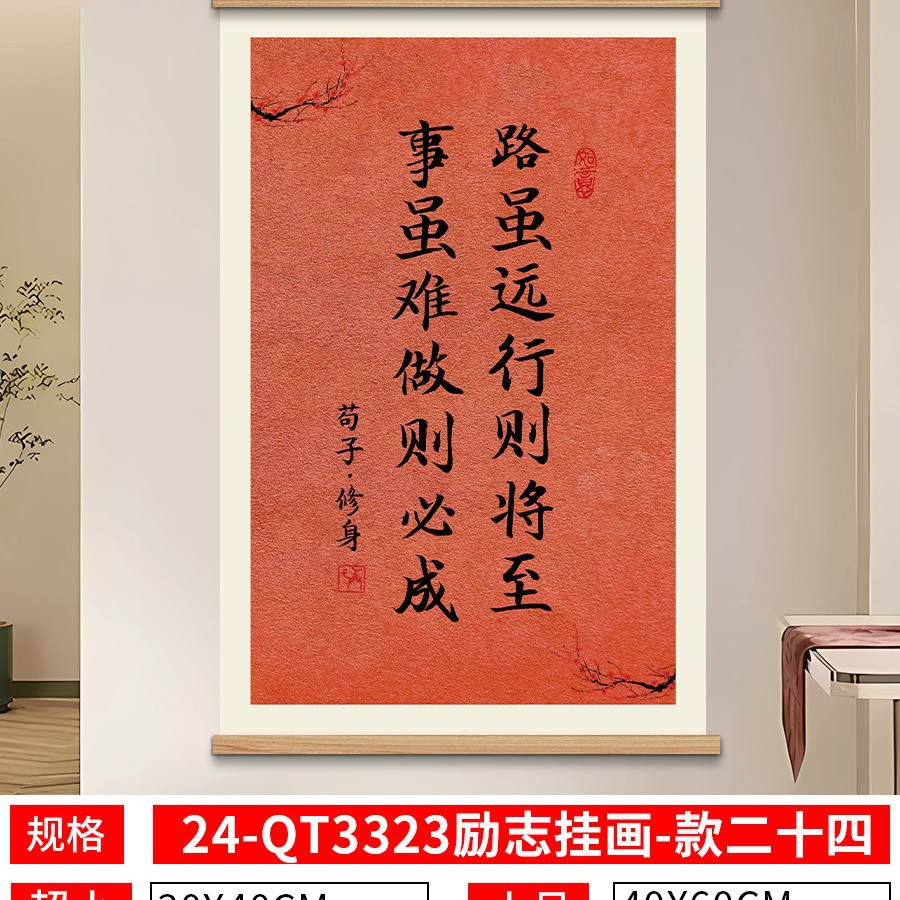 路虽远行则将至
事虽难做则必成
荀子·修身
如意
规格
24-QT3323励志挂画-款二十四
30X40CM
40X60CM